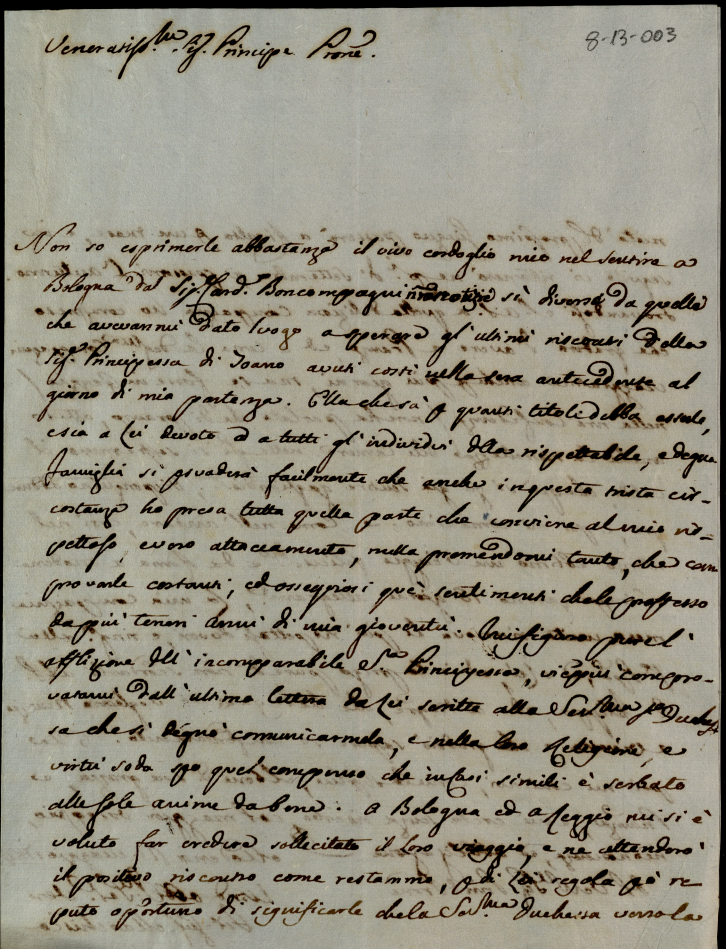 Veneratiss.mo Sig. Principe Prone.
8-13-003
Non so esprimerle abbastanza il vivo cordoglio mio nel sentire a
Bologna dal Sig. Card.e Boncompagni notizie sì diverse da quelle
che avevanmi dato luogo a sperare gl'ultimi riscontri della
Sig.a Principessa di avuti costì nella sera antecedente al
giorno di mia partenza. Ella che sà p quanti titoli debba essere,
e sia a Lei devoto ed a tutti gl'individui della rispettabile, e degna
famiglia si psuaderà facilmente che anche in questa trista cir-
costanza ho presa tutta quella parte che conviene al mio ris-
pettoso, e vero attaccamento, nulla premendomi tanto, che com
provarle costanti, ed ossequiosi que' sentimenti che le professo
da più teneri anni di mia gioventù. M'insiguro pure l'
afflizione dell'incomparabile S.ra Principessa, vieppiù compro-
vatami dall'ultima lettera da Lei scritta alla Ser.ma Duches
sa che si degnò comunicarmela, e nella loro Religione, e
virtù soda spo quel compenso che in casi simili è serbato
alle sole anime dabene. A Bologna ed a Reggio mi si è
voluto far credere sollecitato il loro viaggio, e ne attenderò
il positivo riscontro come restammo, p di Lei regola pò re
puto opportuno di significarle che la Ser.ma Duchessa verso la